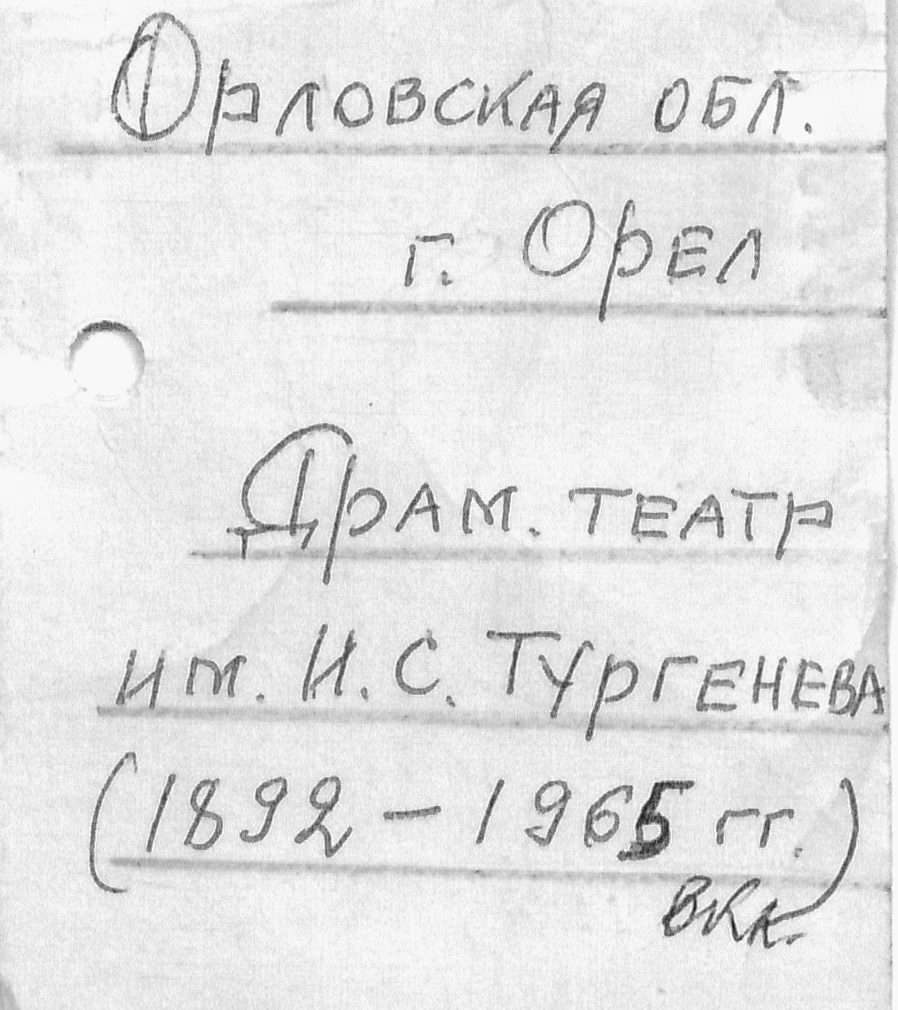 Орловская обл.
г. Орел
Драм. театр
им. И. С. Тургенева
(1892 – 1965 гг.)
вкл.